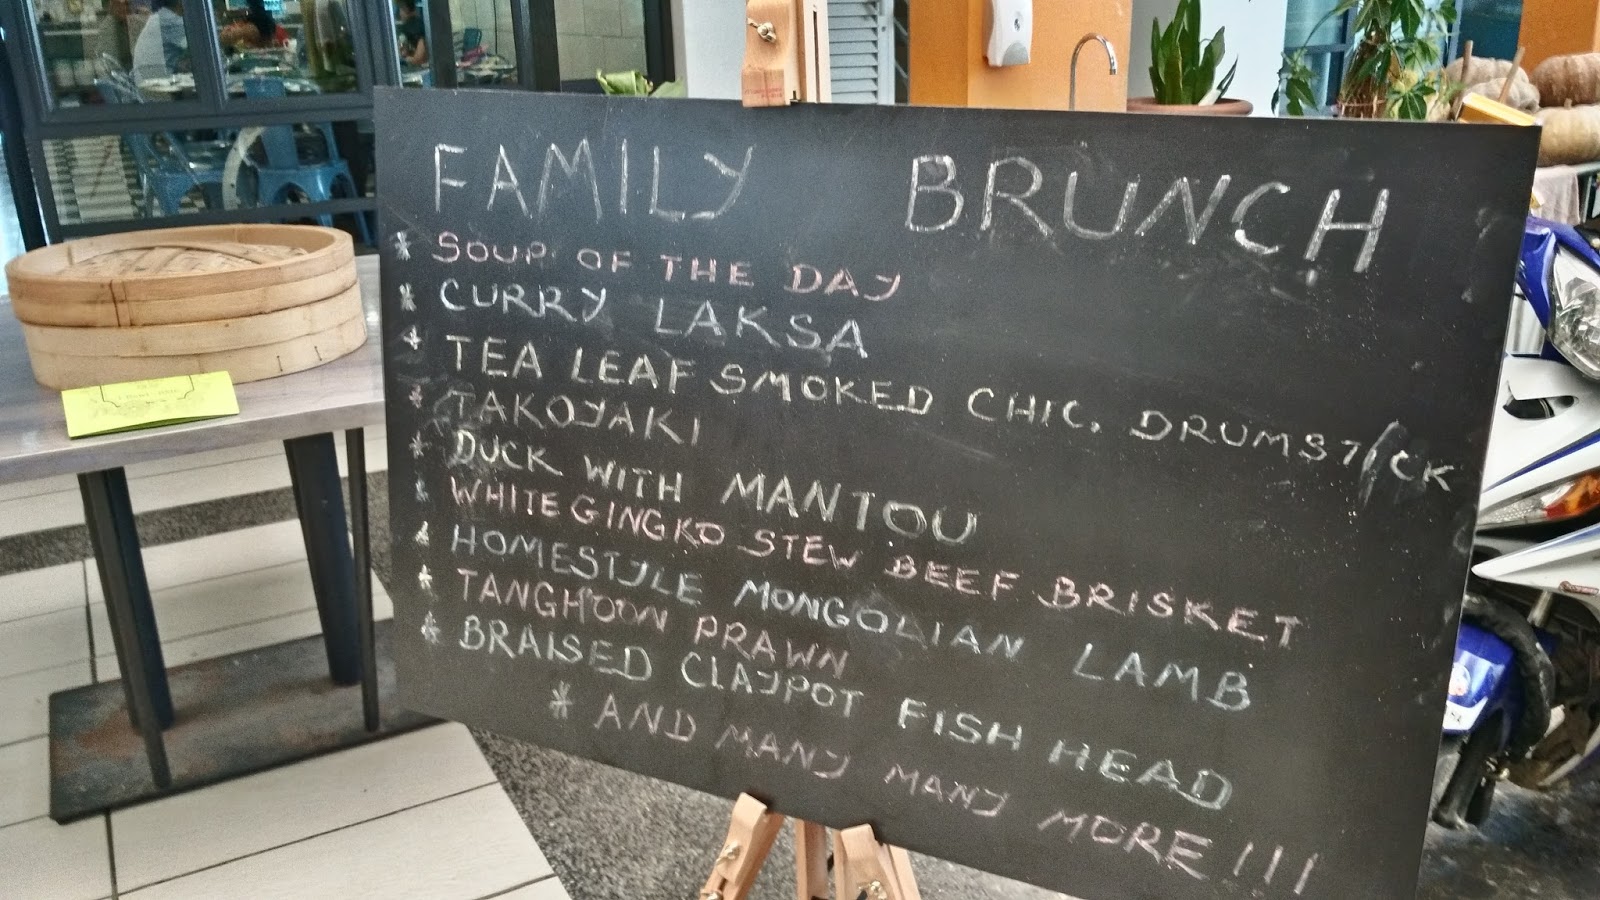 FAMILY BRUNCH
* SOUP OF THE DAY
* CURRY LAKSA
* TEA LEAF SMOKED CHIC. DRUMSTICK
* TAKOYAKI
* DUCK WITH MANTOU
* WHITE GINGKO STEW BEEF BRISKET
* HOMESTYLE MONGOLIAN LAMB
* TANGHOON PRAWN
* BRAISED CLAYPOT FISH HEAD
* AND MANY MANY MORE!!!